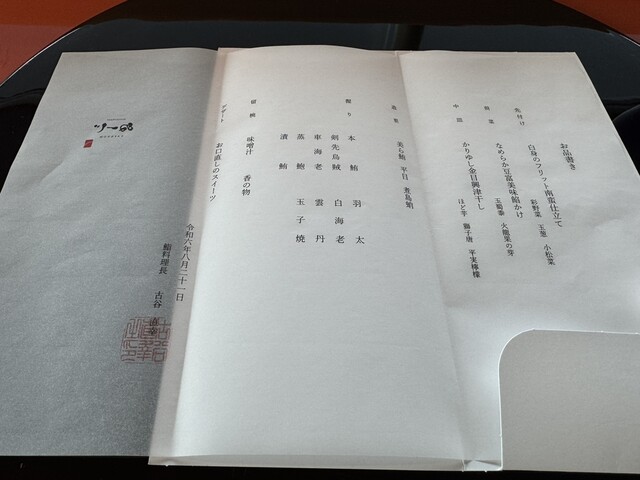 お品書き
先付け
白身のフリット南蛮仕立て
彩野菜 玉葱 小松菜
前菜
なめらか豆富美味餡かけ
玉蜀黍 火龍果の芽
中皿
かりゆし金目興津干し
ほど芋 獅子唐 平実檸檬
造里
美ら鮪 平目 煮烏賊
握り
本鮪 羽太
剣先烏賊 白海老
車海老 雲丹
蒸鮑 玉子焼
漬鮪
留椀
味噌汁 香の物
デザート
お口直しのスイーツ
令和六年八月二十一日
鮨料理長 古谷